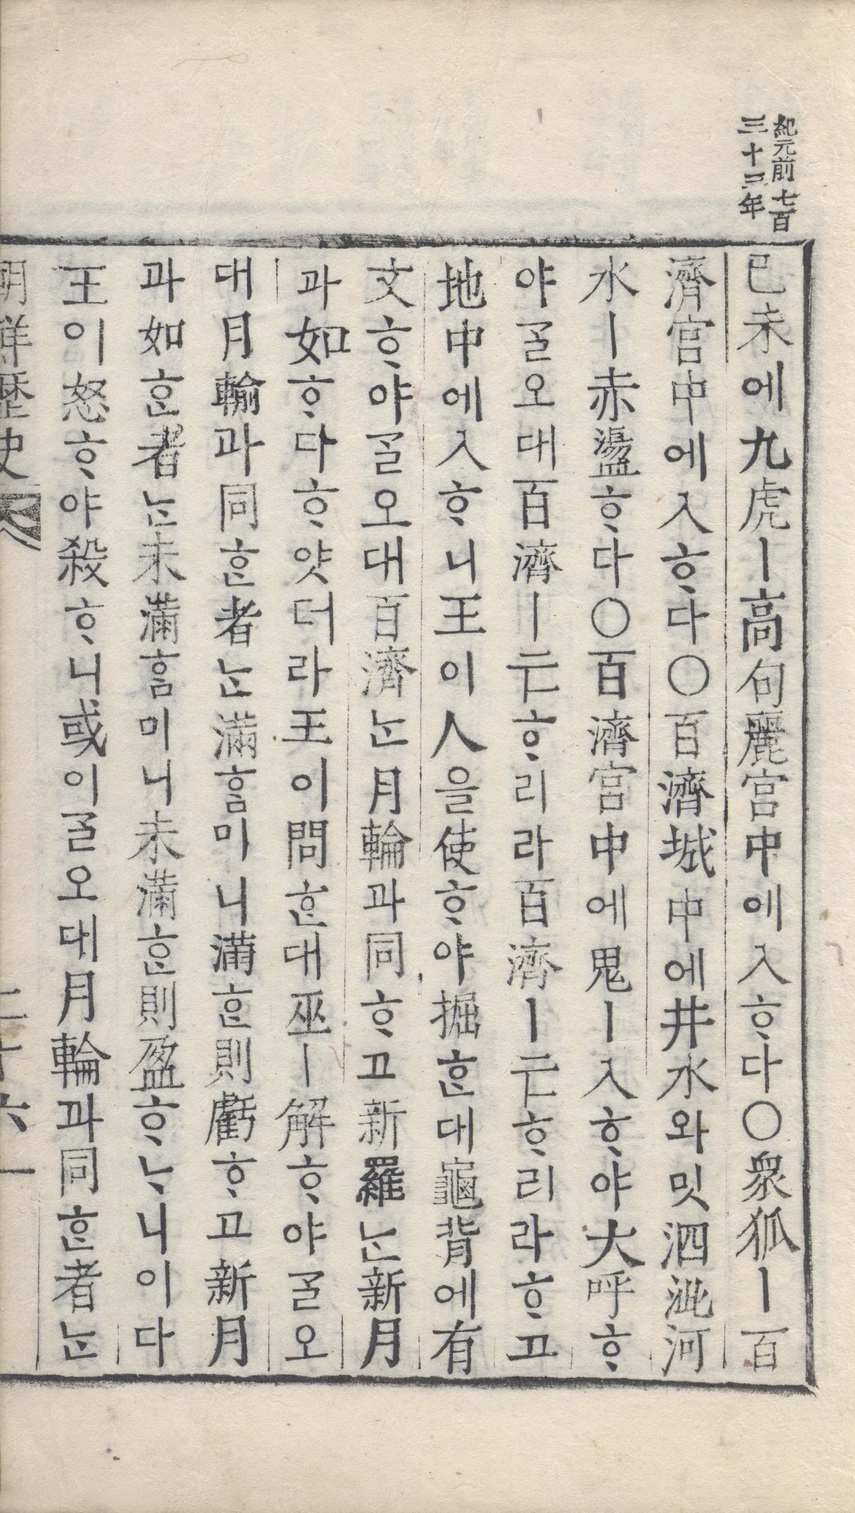 紀元前七百
三十三年
已未에九虎ㅣ高句麗宮中에入ᄒᆞ다○衆狐ㅣ百
濟宮中에入ᄒᆞ다○百濟城中에井水와밋泗泚河
水ㅣ赤盪ᄒᆞ다○百濟宮中에鬼ㅣ入ᄒᆞ야大呼ᄒᆞ
야ᄀᆞᆯ오대百濟ㅣ亡ᄒᆞ리라百濟ㅣ亡ᄒᆞ리라ᄒᆞ고
地中에入ᄒᆞ니王이人을使ᄒᆞ야掘ᄒᆞᆫ대龜背에有
文ᄒᆞ야ᄀᆞᆯ오대百濟ᄂᆞᆫ月輪과同ᄒᆞ고新羅ᄂᆞᆫ新月
과如ᄒᆞ다ᄒᆞ얏더라王이問ᄒᆞᆫ대巫ㅣ解ᄒᆞ야ᄀᆞᆯ오
대月輪과同ᄒᆞᆫ者ᄂᆞᆫ滿ᄒᆞᆷ미니滿ᄒᆞᆫ則虧ᄒᆞ고新月
과如ᄒᆞᆫ者ᄂᆞᆫ未滿ᄒᆞᆷ미니未滿ᄒᆞᆫ則盈ᄒᆞᄂᆞ니이다
王이怒ᄒᆞ야殺ᄒᆞ니或이ᄀᆞᆯ오대月輪과同ᄒᆞᆫ者ᄂᆞᆫ
朝鮮歷史 二十六